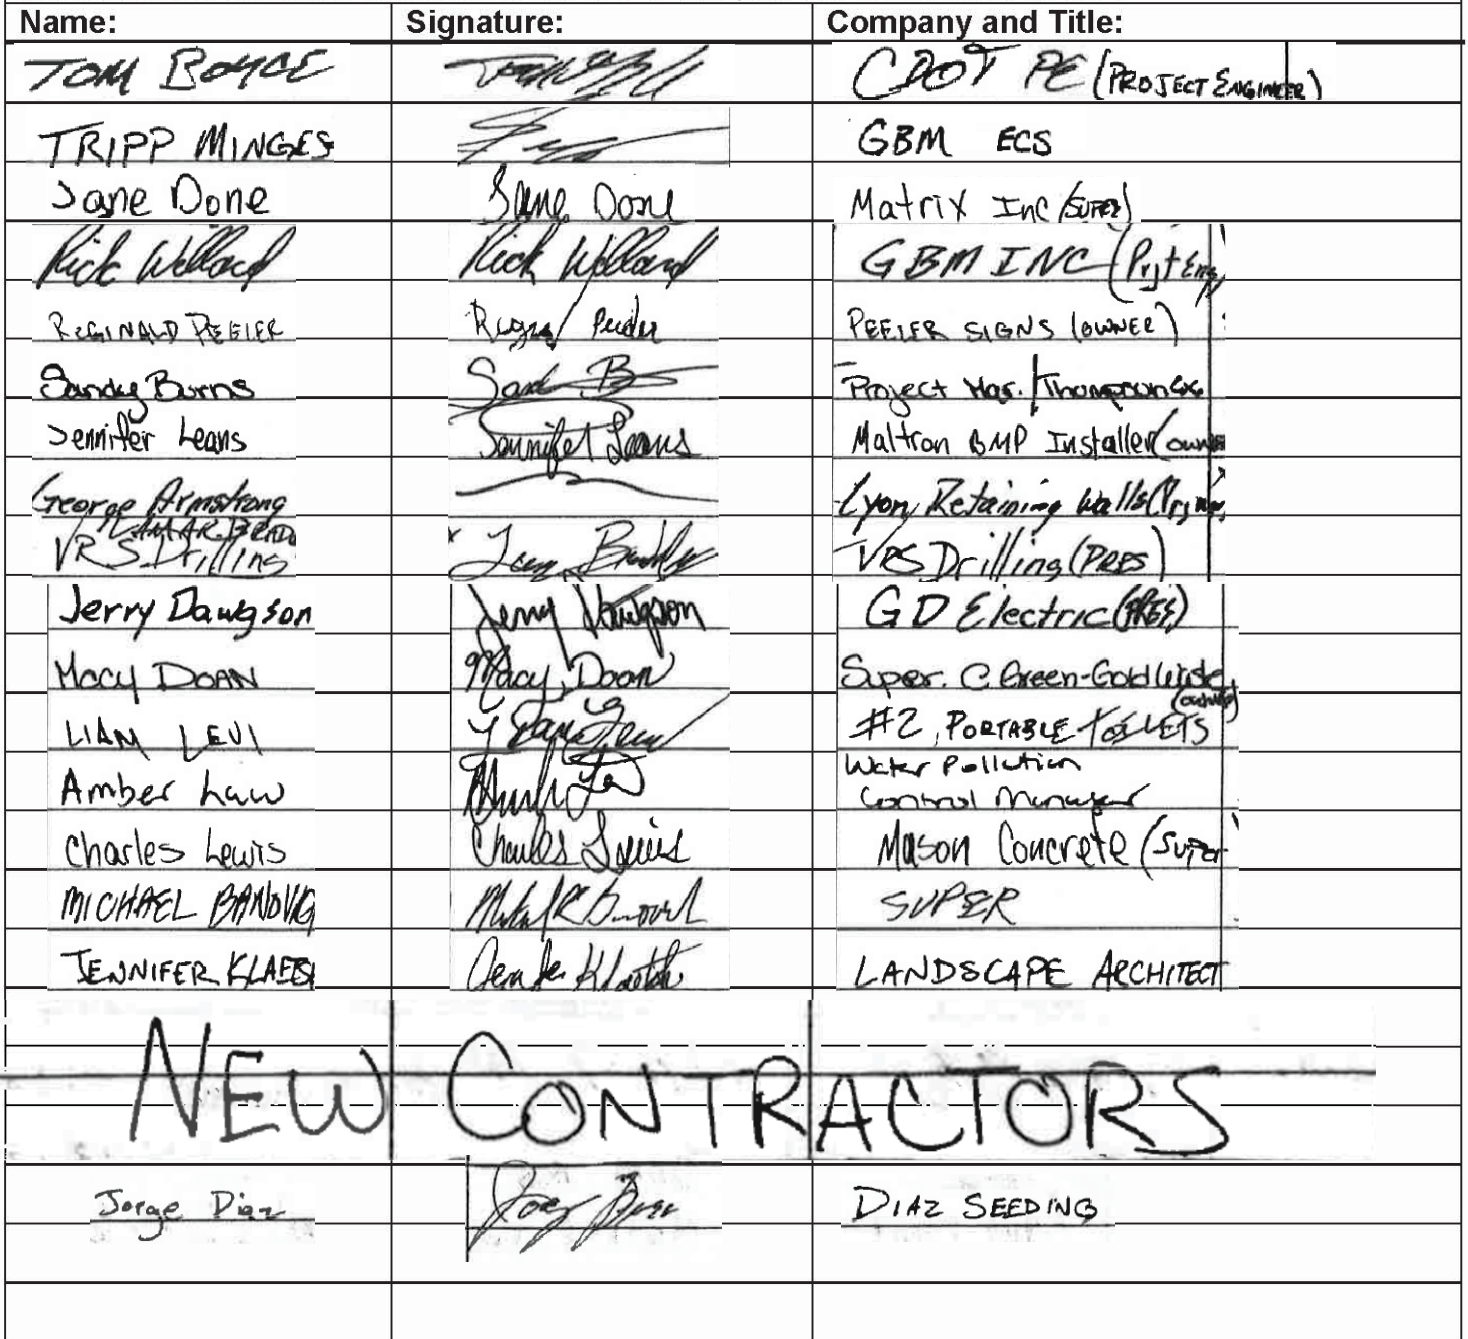 Name: Signature: Company and Title:
TOM BOYCE CDOT PE (PROJECT ENGINEER)
TRIPP MINGES GBM ECS
Jane Done Jane Done Matrix Inc (SUPER)
Rick Willard Rick Willard GBM INC (Prjt Eng
REGINALD PEELER PEELER SIGNS (OWNER)
Sandy Burns Project Mgr. / Thompson
Jennifer Leans Jennifer Leans Maltron BMP Installer (owner
George Armstrong Lyon Retaining Walls
LAMAR
VRS Drilling VRS Drilling (PRES)
Jerry Dawgson Jerry Dawgson GD Electric (PRES)
Macy DOAN Macy Doan Super. C. Green-Gold
LIAM LEVI #2, PORTABLE TOILETS
Water Pollution
Amber Law Control Manager
Charles Lewis Charles Lewis Mason Concrete (Super
MICHAEL SUPER
JENNIFER LANDSCAPE ARCHITECT
NEW CONTRACTORS
Jorge Diaz DIAZ SEEDING